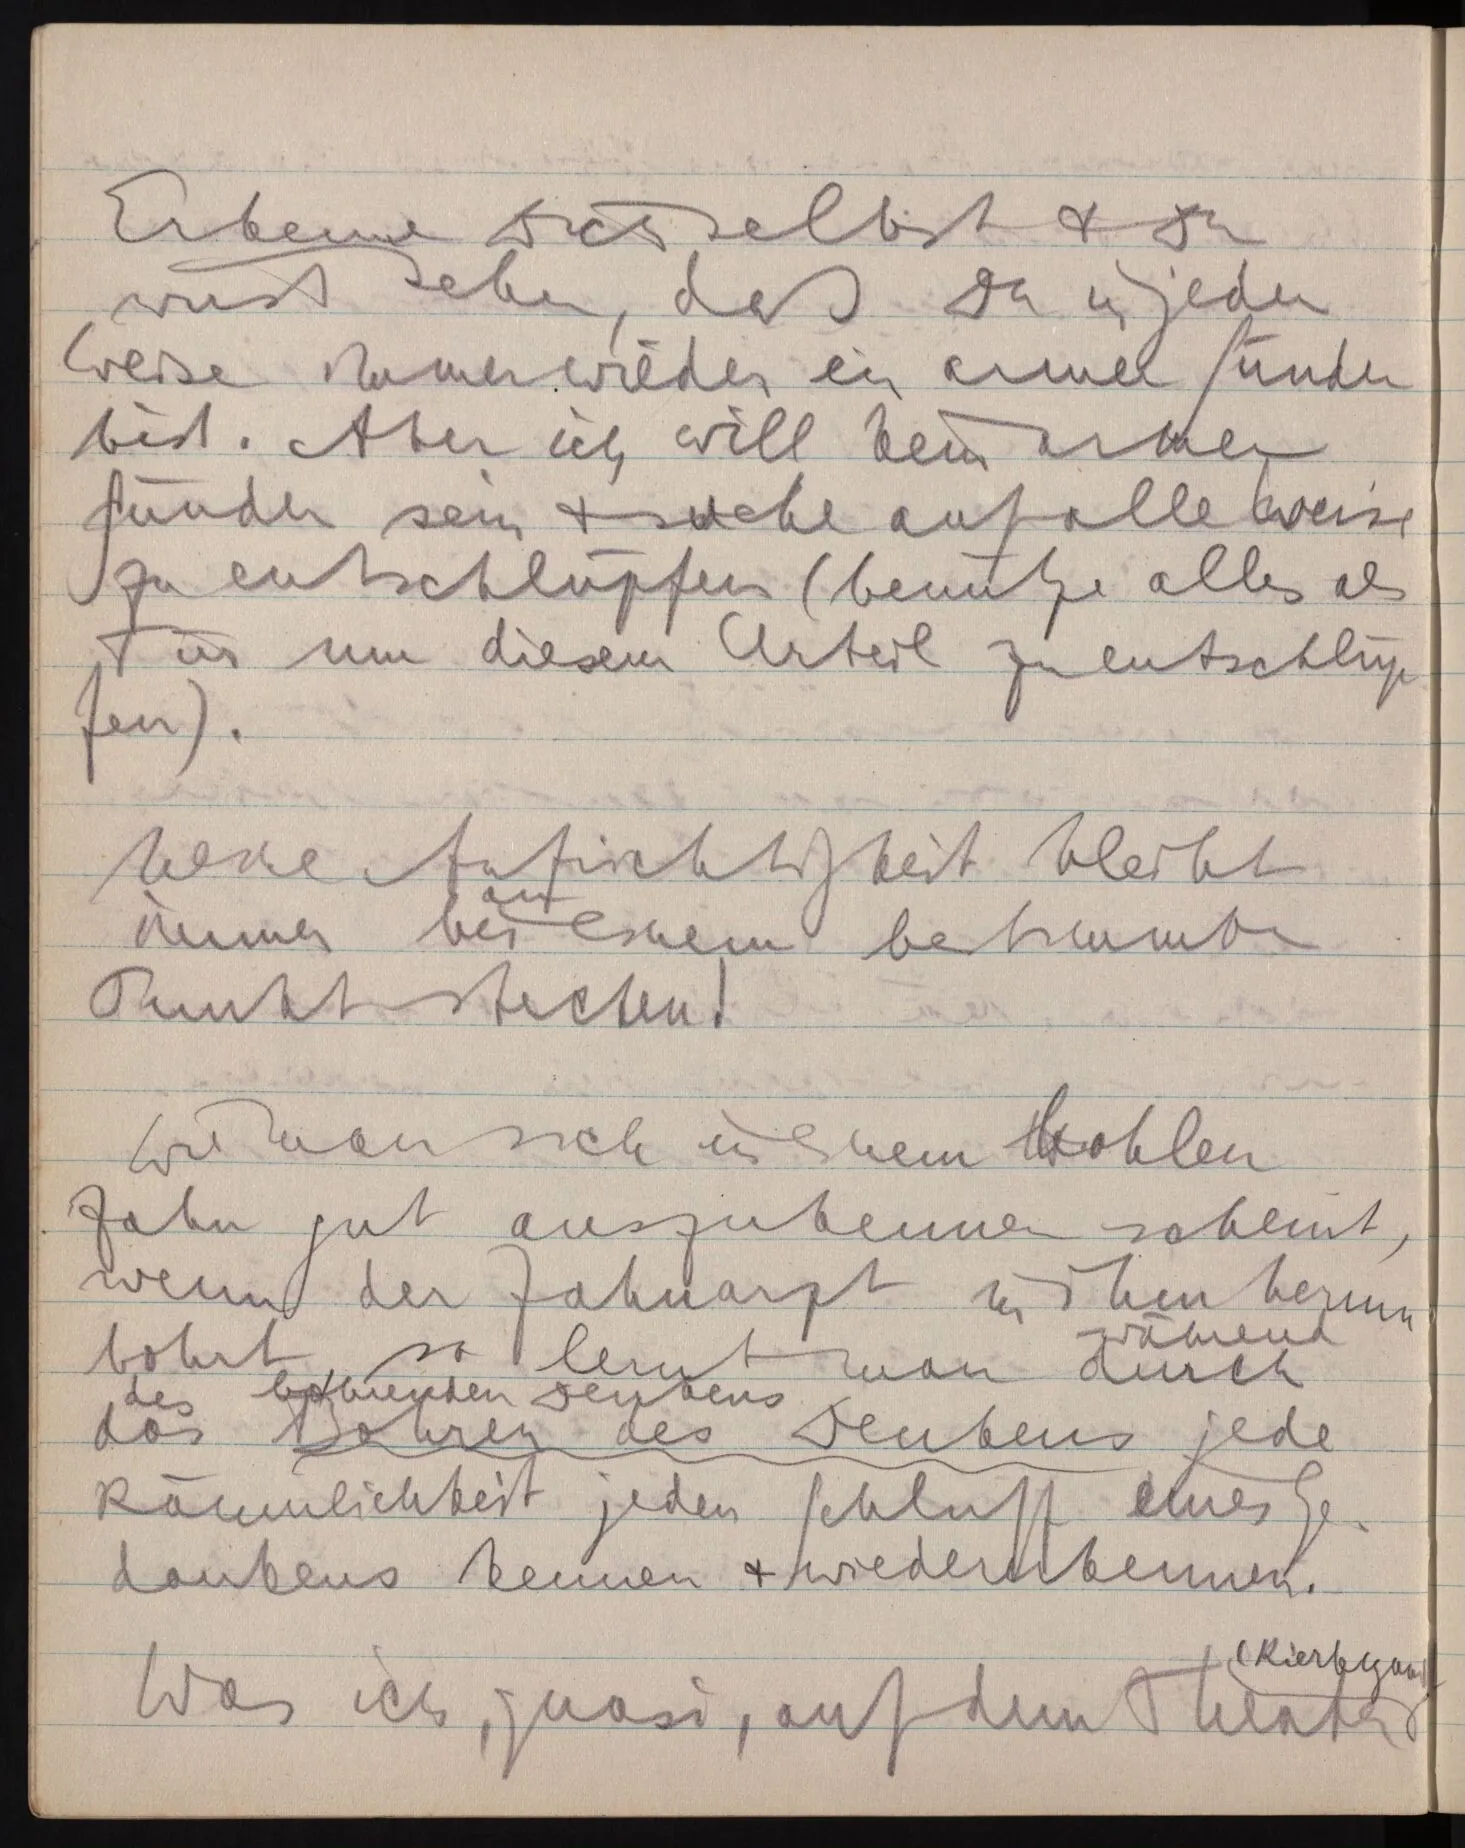 Erkenne Dich selbst & Du
wirst sehen, daß Du in jeder
Weise immer wieder ein armer Sünder
bist. Aber ich will kein armer
Sünder sein & suche auf alle Weise
zu entschlüpfen (benütze alles als
Tür um diesem Urteil zu entschlüp
fen).
Meine Aufrichtigkeit bleibt
an
immer bei einem bestimmten
Punkt stecken!
Wie man sich in einem hohlen
Zahn gut auszukennen scheint,
wenn der Zahnarzt in ihm herum
während
bohrt, so lernt man durch
des bohrenden Denkens
das Bohren des Denkens jede
Räumlichkeit jeden Schluff eines Ge-
dankens kennen & wiedererkennen.
(Kierkegaard)
Was ich, quasi, auf dem Theater